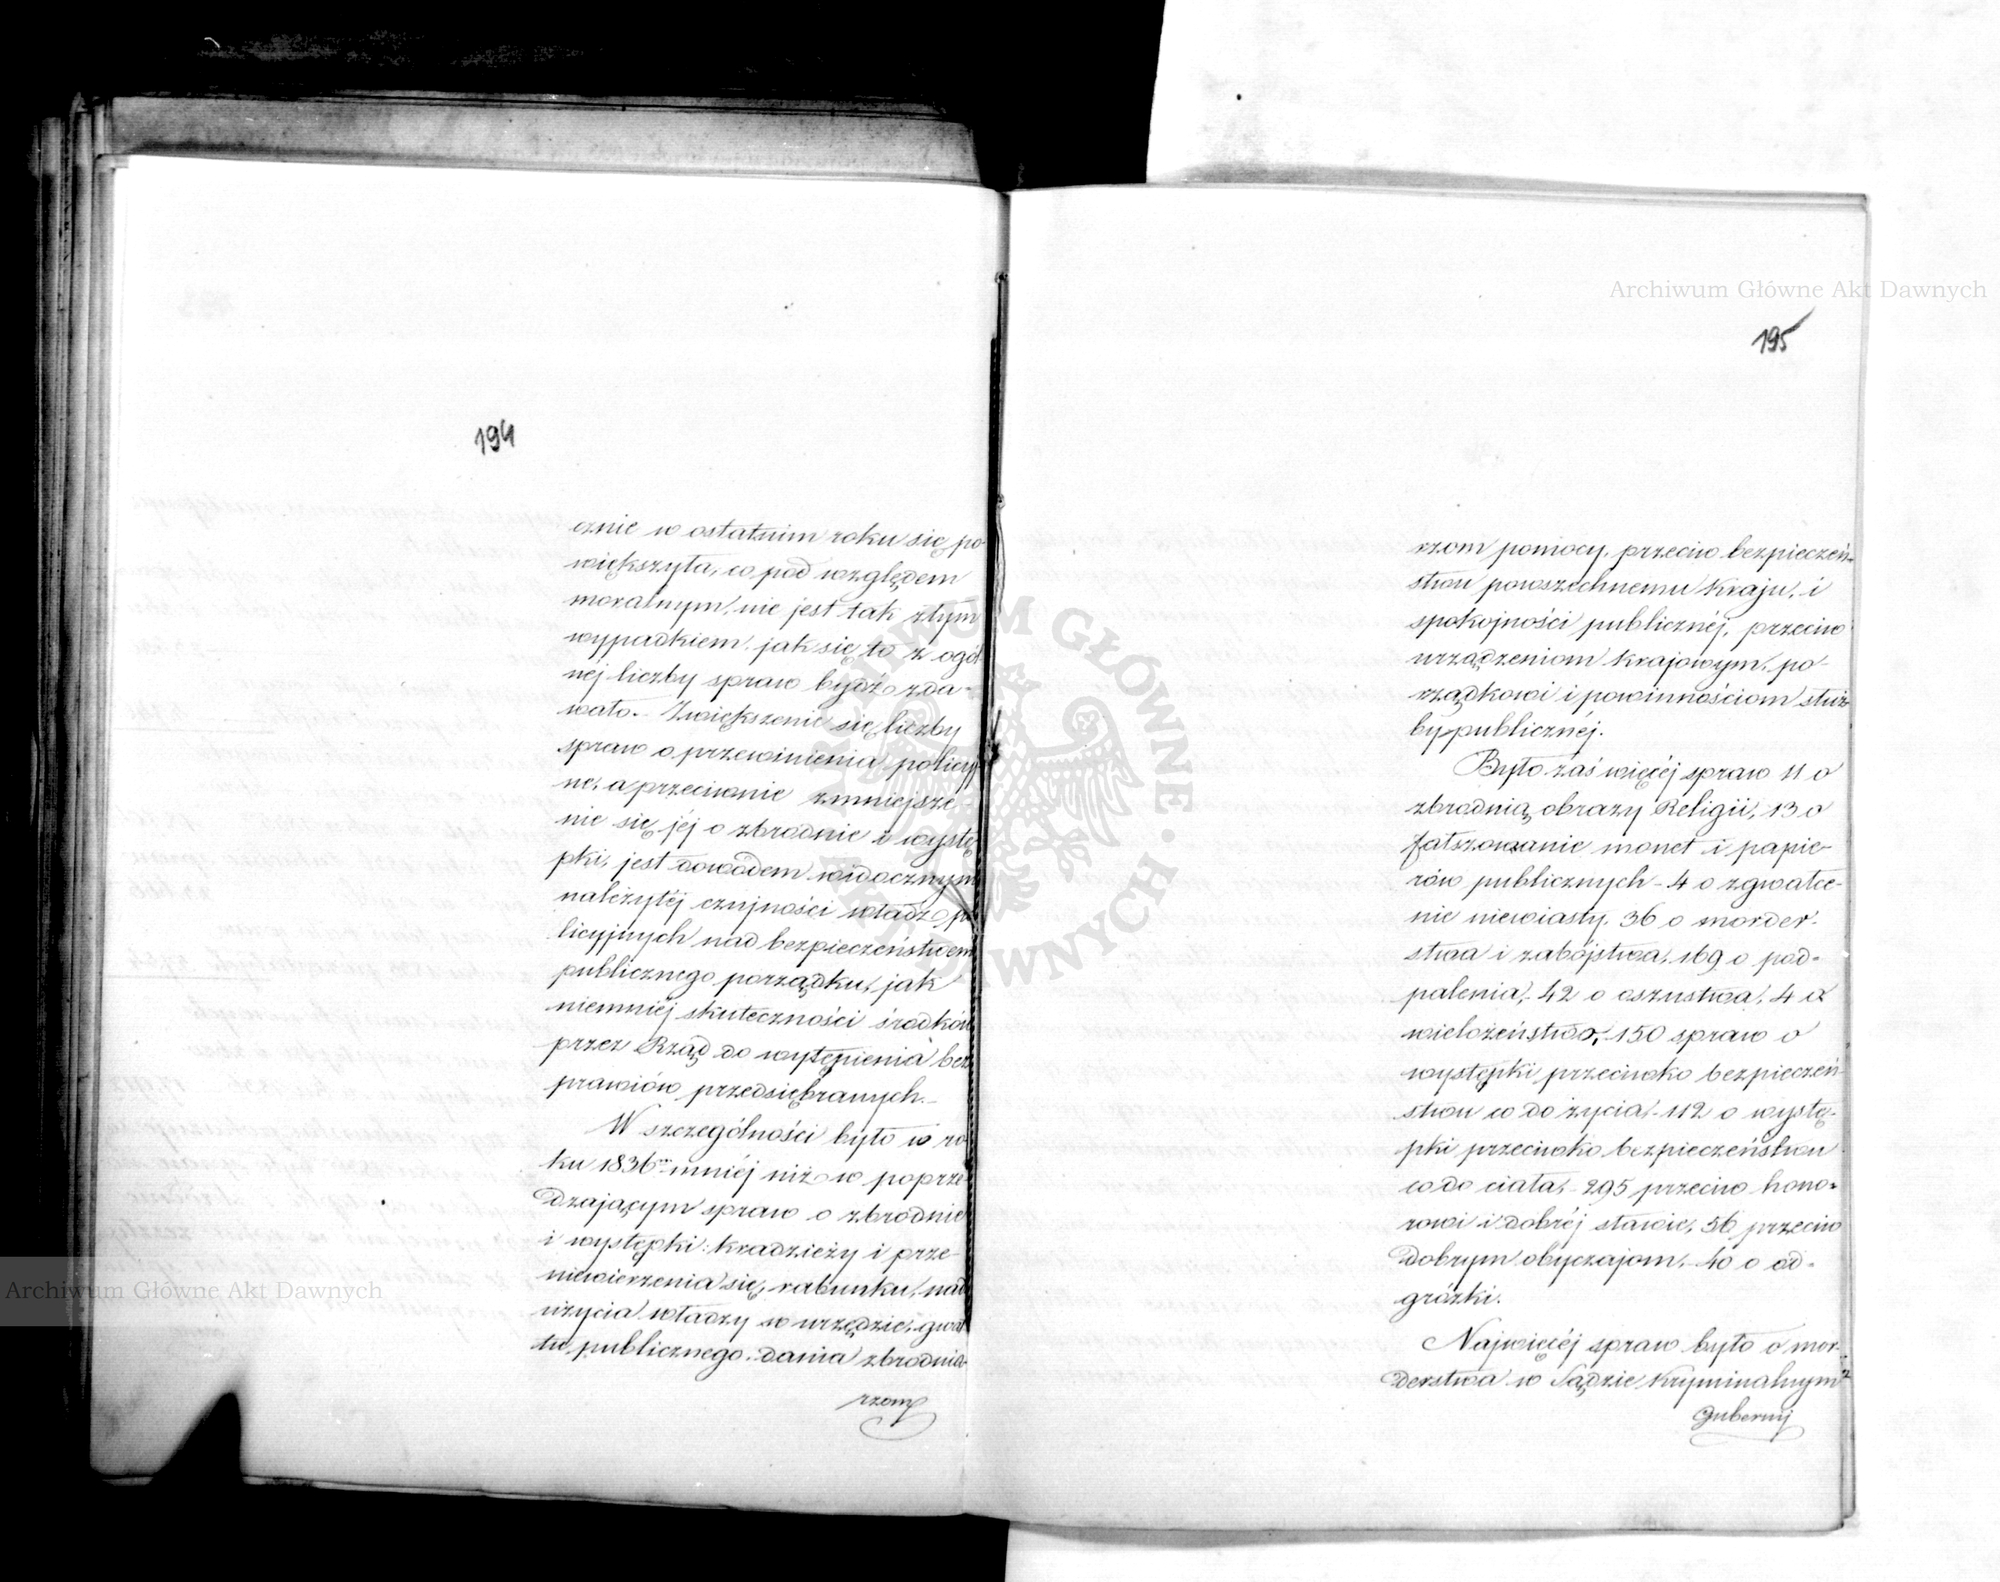 194
cznie w ostatnim roku się po
większyła, co pod względem
moralnym, nie jest tak złym
wypadkiem, jak się to z ogól
néj liczby spraw bydź zda-
wało. Zwiększenie się liczby
spraw o przewinienia policyj
ne, a przeciwnie zmniejsze-
nie się jéj o zbrodnie i wystę
pki, jest dowodem widocznym
należytéj czujności władz po
licyjnych nad bezpieczeństwem
publicznego porządku, jak
niemniéj skuteczności środków
przez Rząd do wytępienia bez
prawiów przedsiębranych.
W szczególności było w ro
ku 1836m mniéj niż w poprze
dzającym spraw o zbrodnie
i występki: kradzieży i prze-
niewierzenia się, rabunku, nad
użycia władzy w urzędzie, gwał
tu publicznego, dania zbrodnia
rzom
195
rzom pomocy, przeciw bezpieczeń-
stwu powszechnemu Kraju, i
spokojności publicznéj, przeciw
urządzeniom Krajowym, po-
rządkowi i powinnościom służ
by publicznéj.
Było zaś więcéj spraw 11 o
zbrodnią obrazy Religii, 13 o
fałszowanie monet i papie-
rów publicznych - 4 o zgwałce-
nie niewiasty, 36 o morder-
stwa i zabójstwa, 169 o pod-
palenia, - 42 o oszustwa, 4 o
wielożeństwo, - 150 spraw o
występki przeciwko bezpieczeń
stwu co do życia, - 112 o wystę-
pki przeciwko bezpieczeństwu
co do ciała, - 295 przeciw hono-
rowi i dobréj sławie, 56 przeciw
dobrym obyczajom, - 40 o od-
gróżki.
Najwięcéj spraw było o mor-
derstwa w Sądzie Kryminalnym
Gubernij
Archiwum Główne Akt Dawnych
Archiwum Główne Akt Dawnych